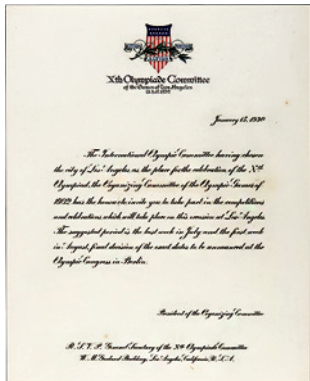 Xth Olympiade Committee
of the Games of Los Angeles
U.S.A. 1932
January 15, 1930
The International Olympic Committee having chosen
the city of Los Angeles as the place for the celebration of the Xth
Olympiad, the Organizing Committee of the Olympic Games of
1932 has the honor to invite you to take part in the competitions
and celebrations which will take place on this occasion at Los Angeles.
The suggested period is the last week in July and the first week
in August, final decision of the exact dates to be announced at the
Olympic Congress in Berlin.
President of the Organizing Committee
R.S.V.P. General Secretary of the Xth Olympiade Committee
W. M. Garland Building, Los Angeles, California, U.S.A.